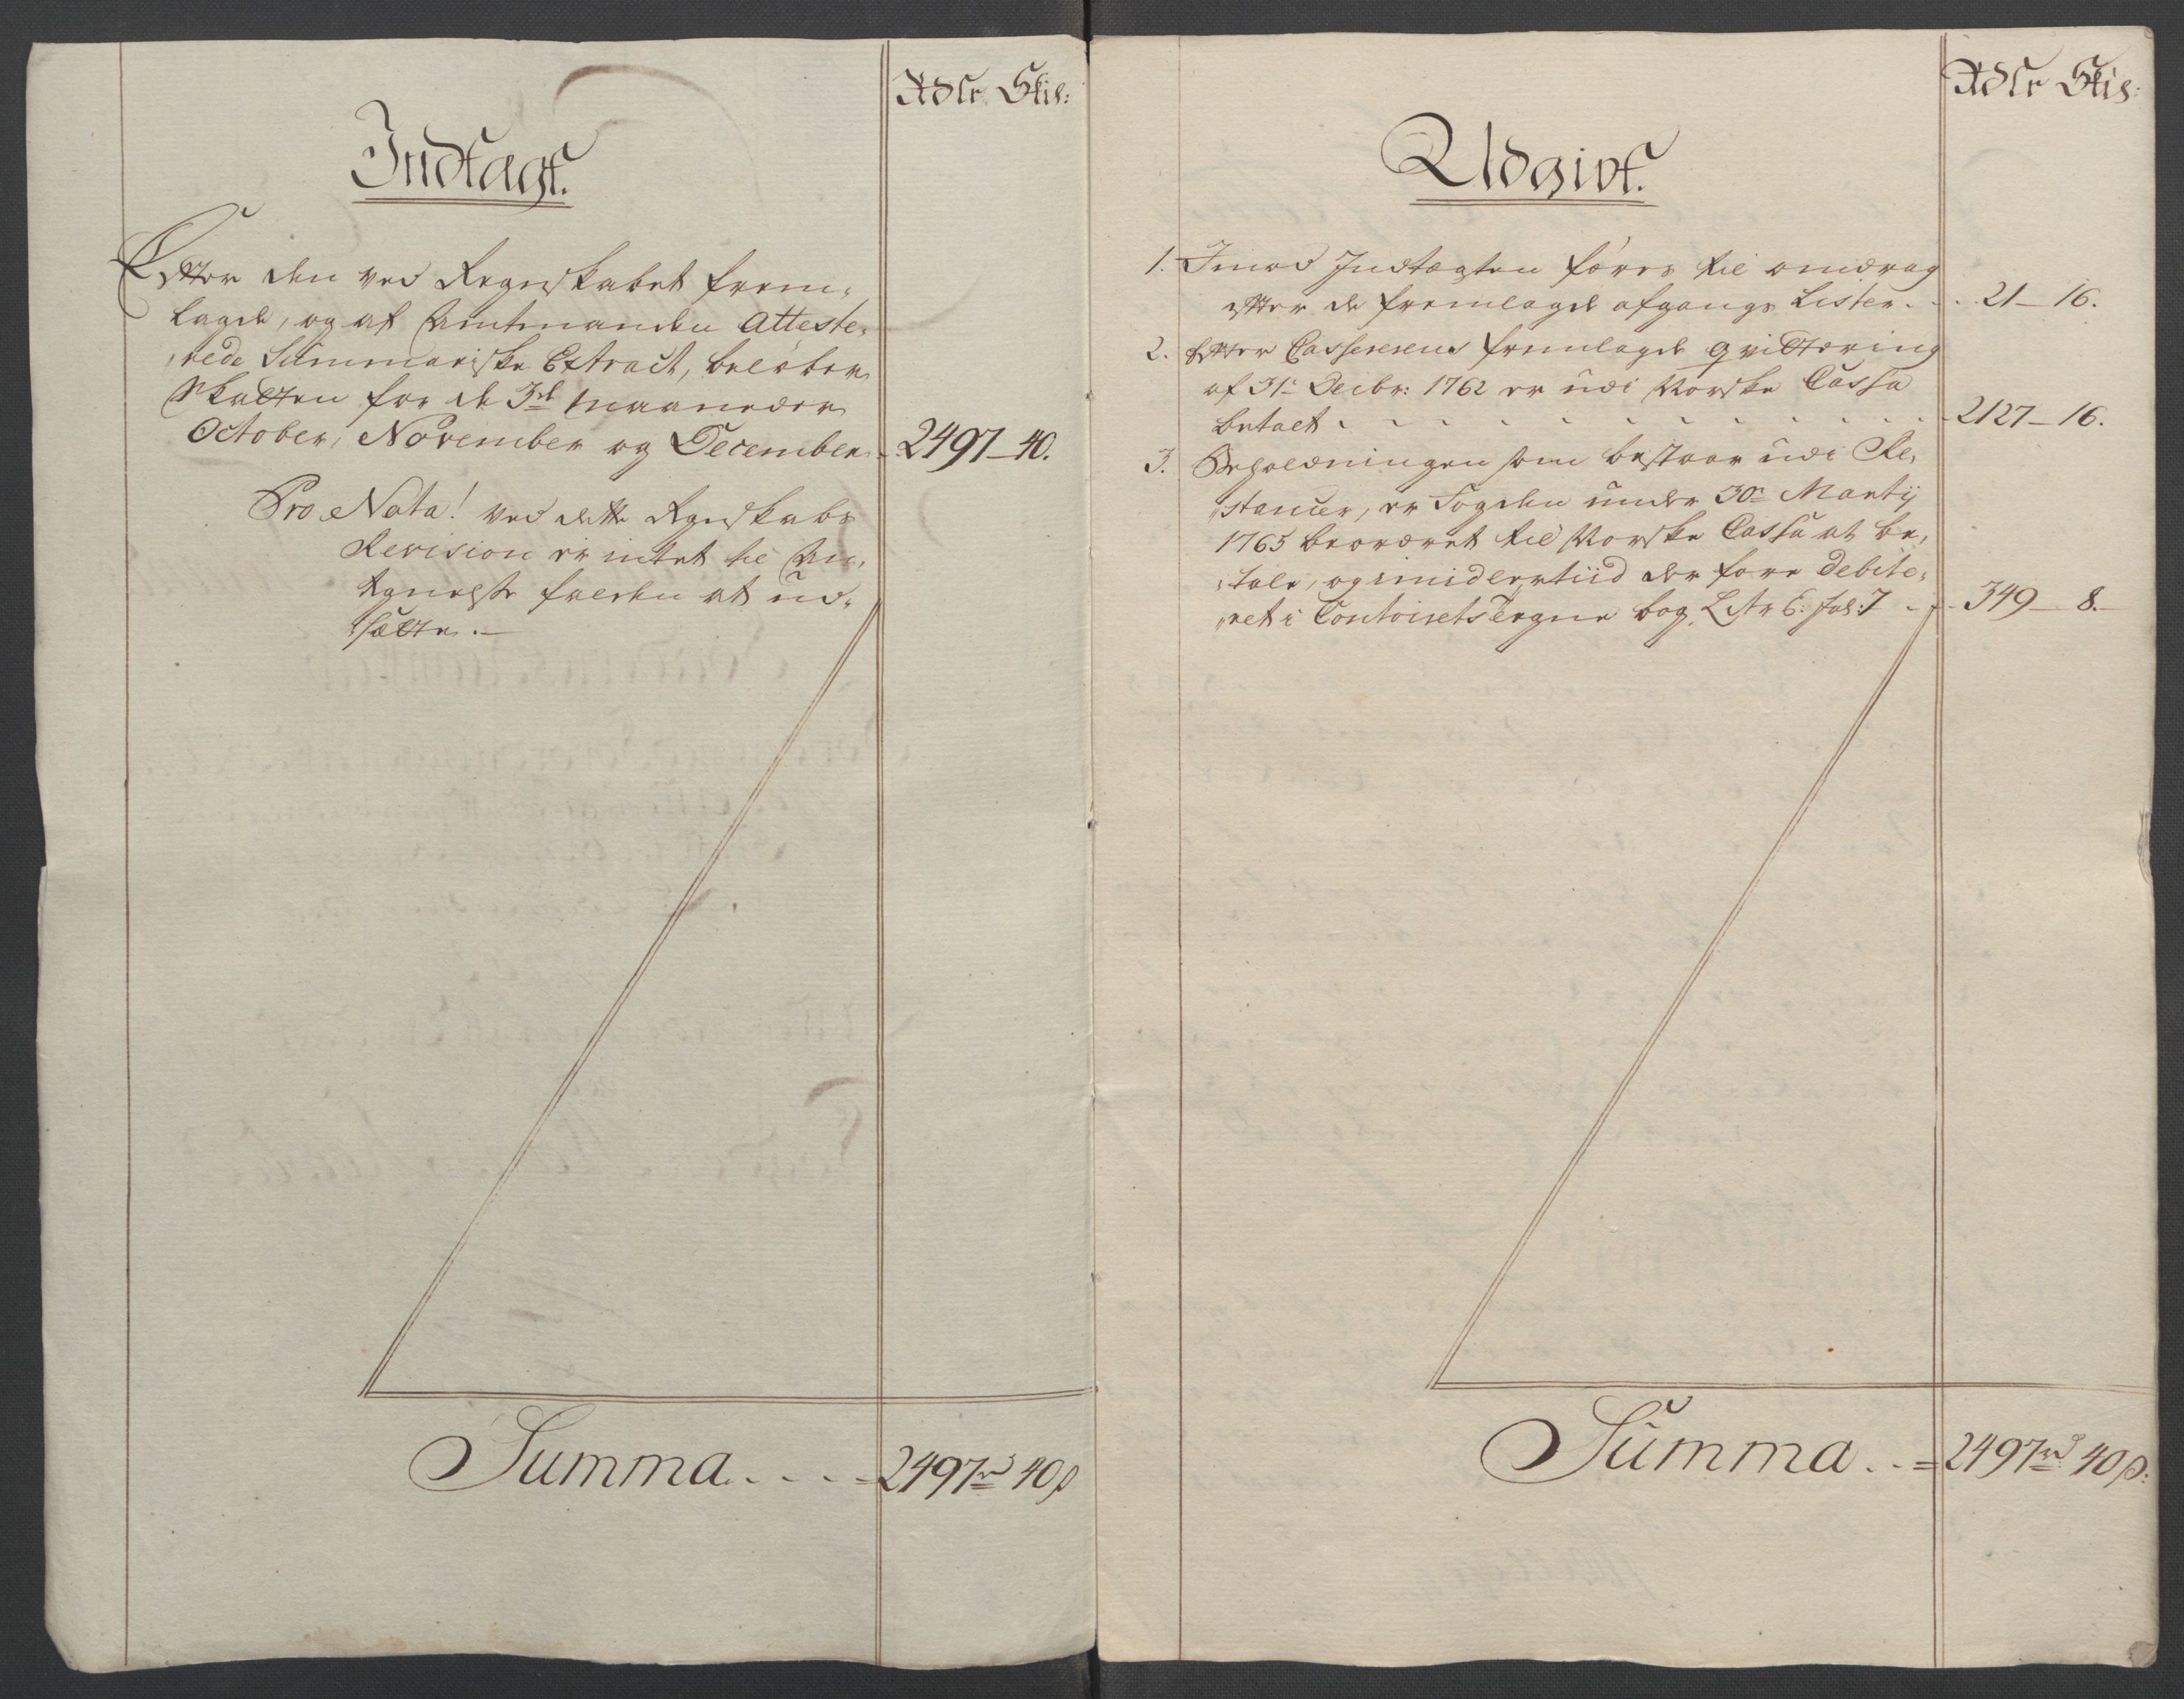 Rdlr Skil:
Indtægt.
Efter den ved Regnskabet frem-
lagde, og af Amtmanden Atteste-
rede Summariske Extract, beløber
Skatten for de 3de Maaneder
October, November og December - 2497 - 40.
Pro Nota! ved dette Regnskabs
Revision er intet til An-
tegnelse falden at ud-
sætte. -
Summa . . . . 2497rd 40s
Rdlr Skil:
Udgivt.
1. Imod Indtægten føres til omdrag
efter de fremlagde afgangs Lister . . . 21 - 16.
2. Efter Casserens fremlagde qvittering
af 31te Decbr: 1762 er udi Norske Cassa
betalt . . . . . . . . . . . 2127 - 16.
3. Beholdningen som bestaar udi Re-
stancer, er Fogden under 30te Martij
1765 beordret til Norske Cassa at be-
tale, og imidlertiid derfore debite-
ret i Contoirets Regne bog Litr C: fol: 7 - 349 - 8.
Summa . . = 2497rd 40s: